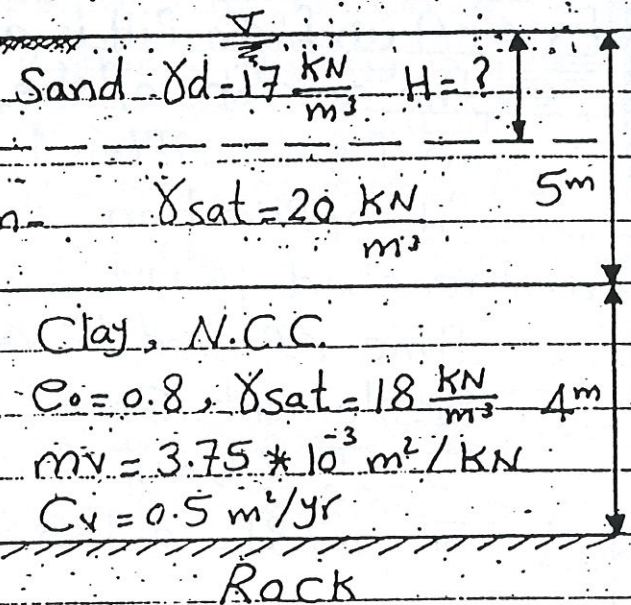 Sand γd=17 KN/m³ H=?
γsat=20 KN/m³ 5m
n-
Clay, N.C.C.
e₀=0.8, γsat=18 KN/m³ 4m
mv=3.75*10⁻³ m²/KN
Cv=0.5 m²/yr
Rock